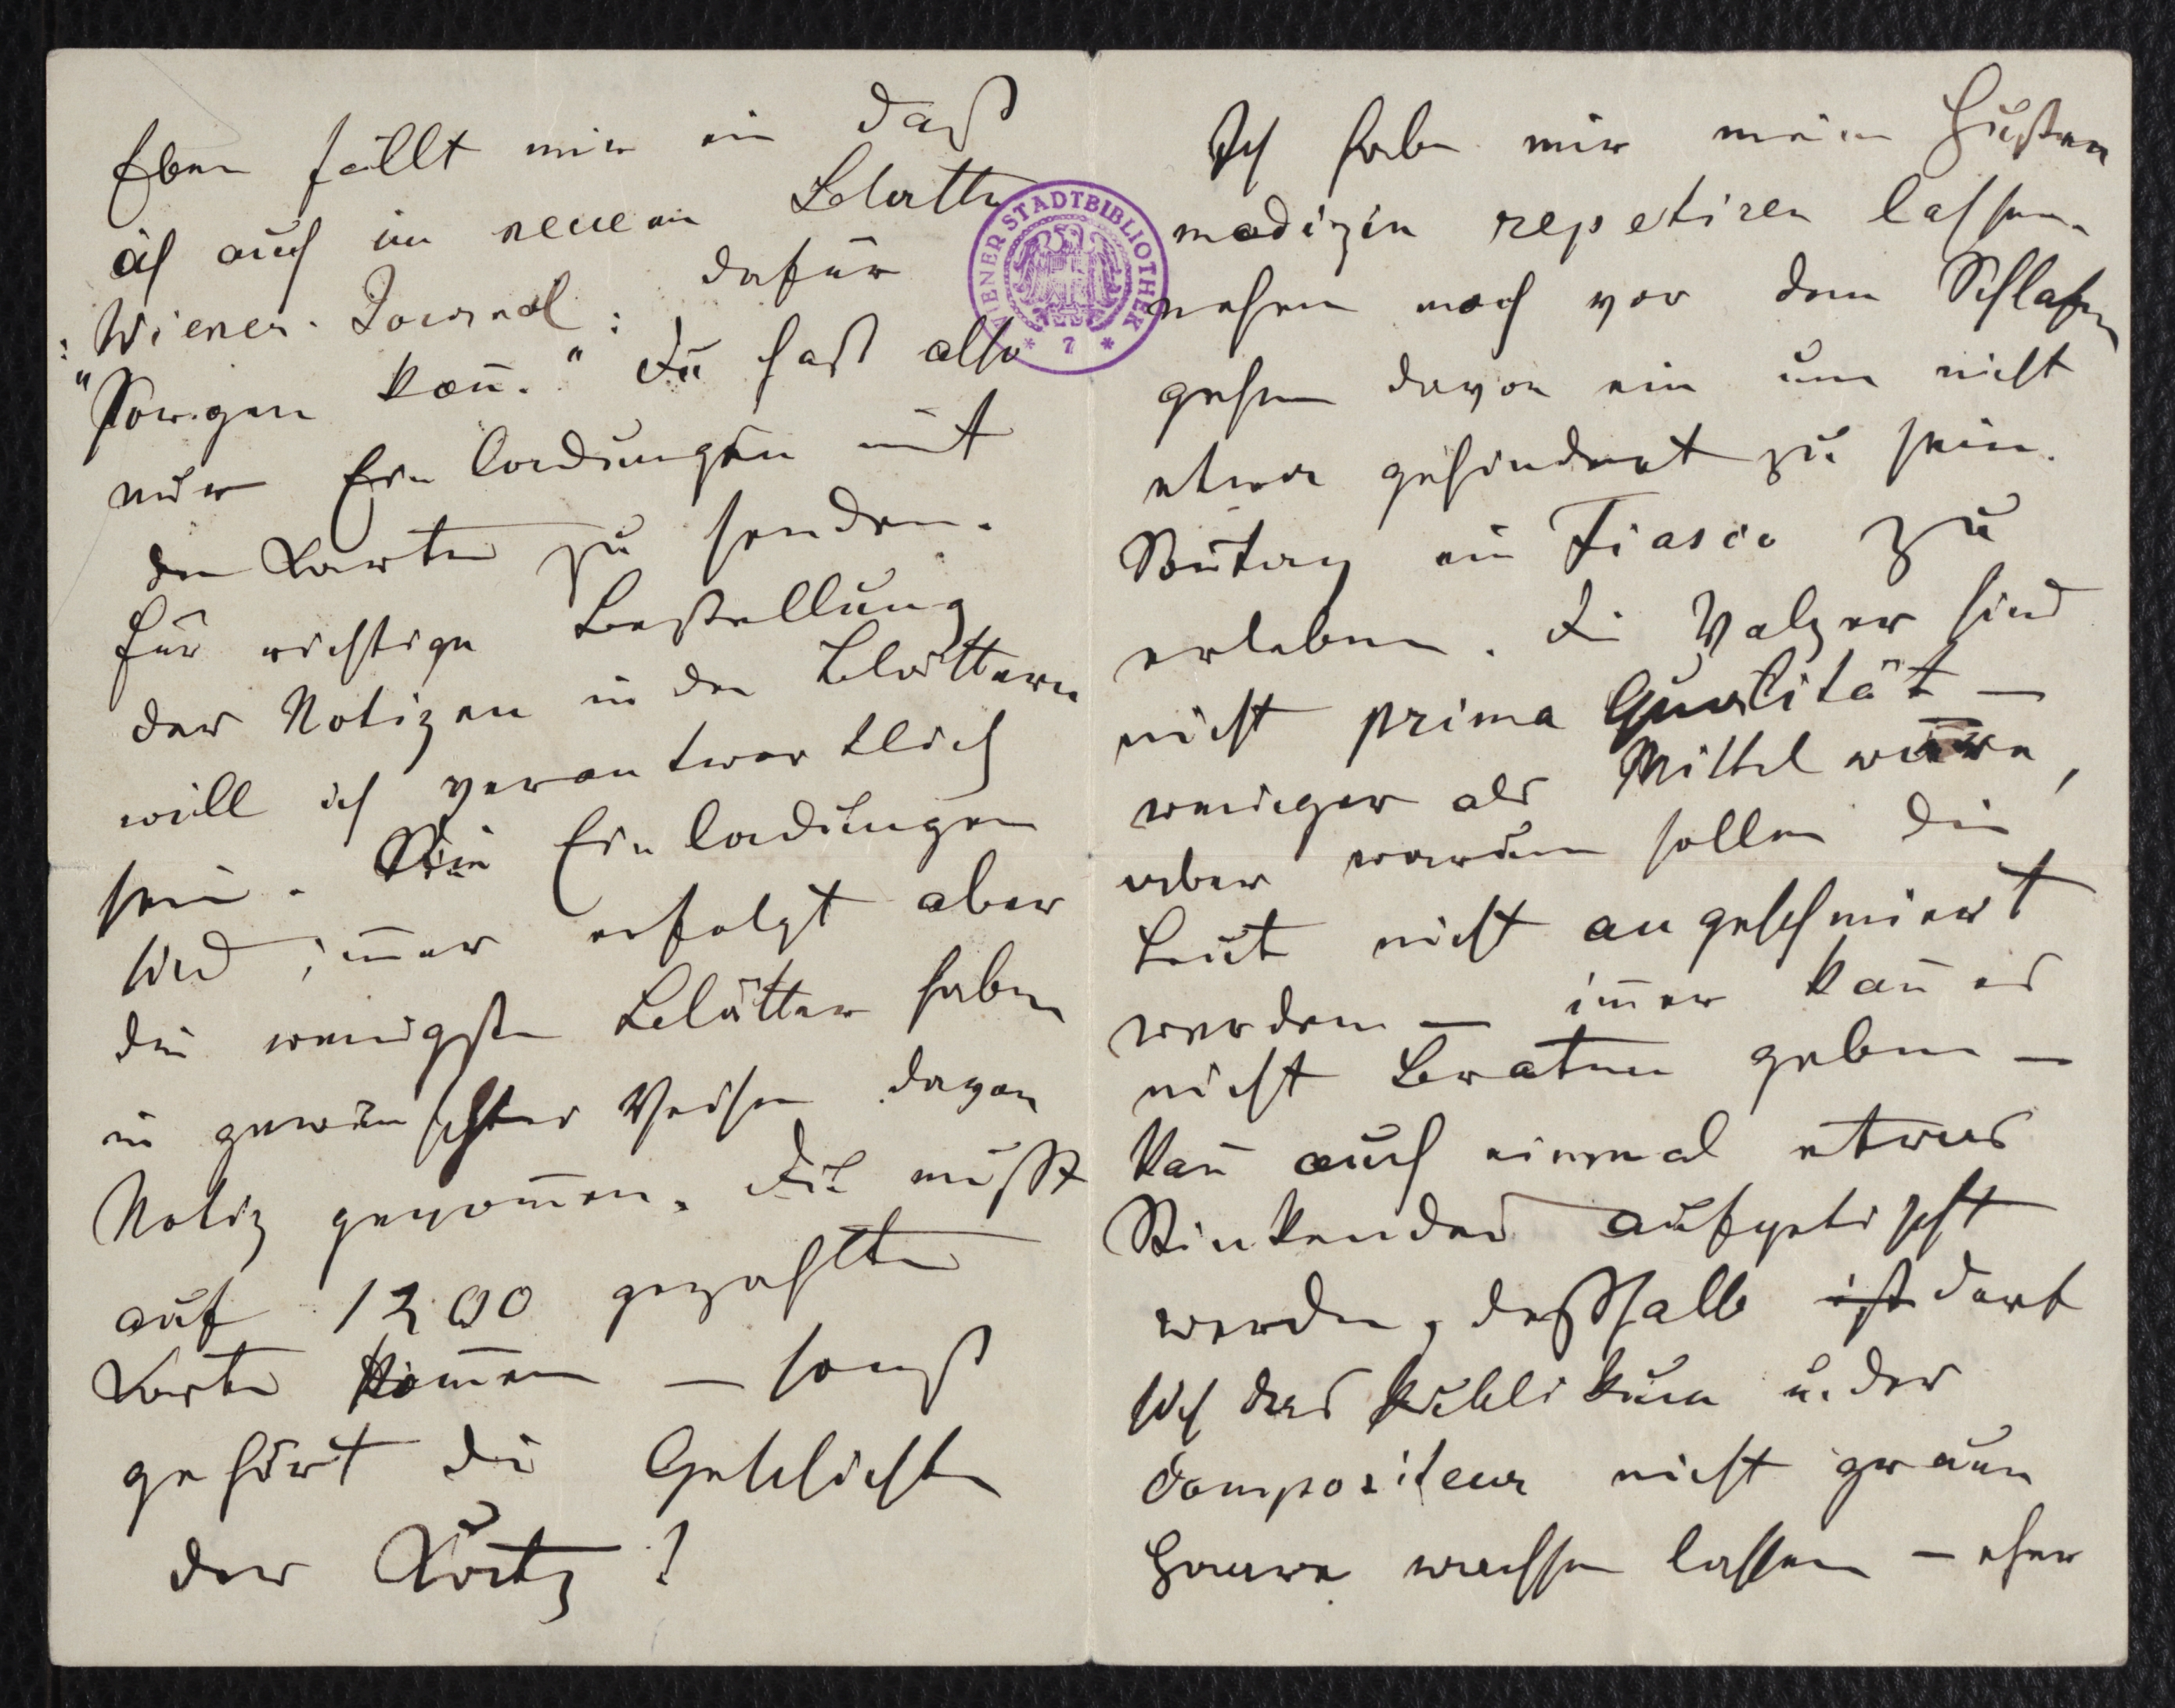 Eben fällt mir ein daß
ich auch im neuen Blatte
„Wiener Journal: dafür
sorgen kann." Du hast also
nur Einladungen mit
den Karten zu senden.
Für richtige Bestellung
der Notizen in den Blättern
will ich verantwortlich
sein. Die Einladungen
sind immer erfolgt aber
die wenigsten Blätter haben
in gewünschter Weise davon
Notiz genommen. Du mußt
auf 1200 gezahlte
Karten kommen – sonst
gehört die Geschichte
der Katz!
Ich habe mir meine Husten
medizin repetiren lassen.
nehme noch vor dem Schlafen
gehen davon ein um nicht
etwa gehindert zu sein.
Sonntag ein Fiasco zu
erleben. Die Walzer sind
nicht prima Qualität –
weniger als Mittelware,
aber warum sollen die
Leut nicht angeschmiert
werden – immer kann es
nicht Braten geben –
kann auch einmal etwas
Stinkendes aufgetischt
werden, deßhalb ist darf
sich das Publikum u. der
Compositeur nicht graue
Haare wachsen lassen – eher
WIENER STADTBIBLIOTHEK
* 7 *